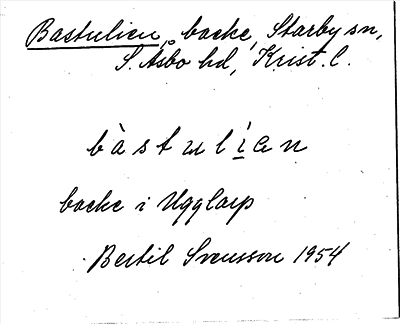 Bastulien, backe, Starby sn,
S. Åsbo hd, Krist. l.
bàstul i̱an
backe i Ugglarp
Bertil Svensson 1954